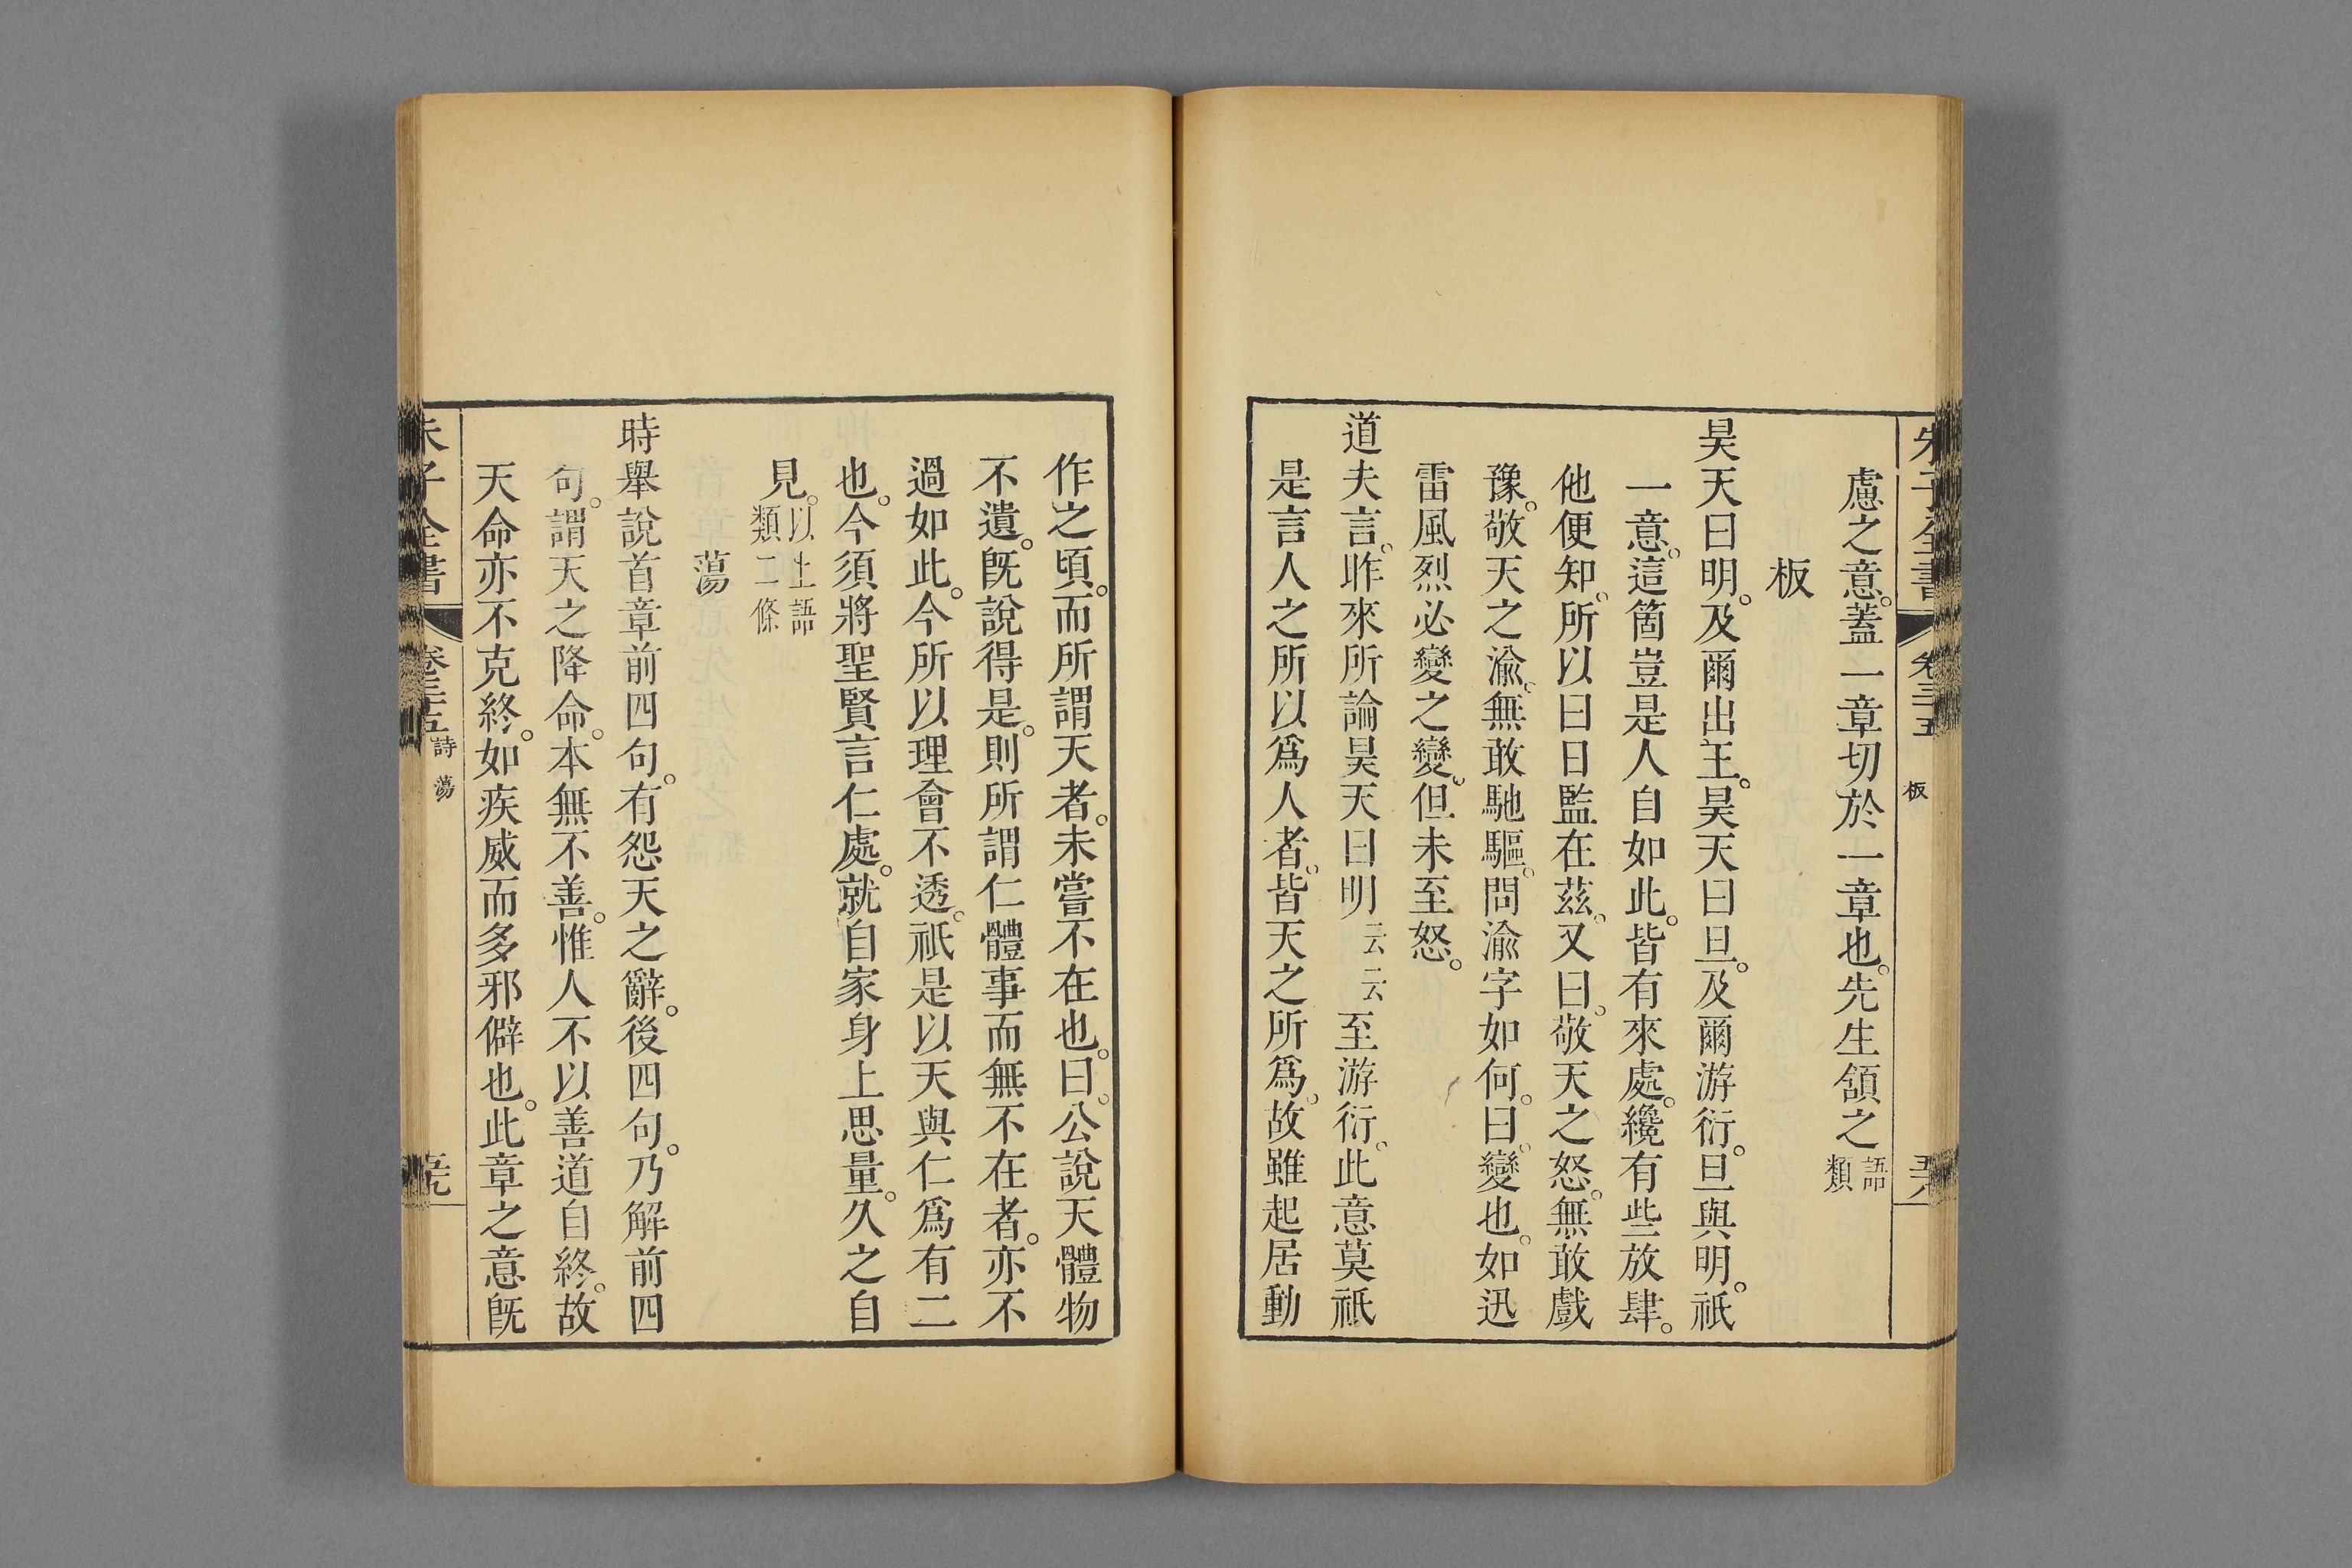 朱子全書 卷三五 板 五八
慮之意。蓋一章切於一章也。先生頷之語類
板
昊天曰明。及爾出王。昊天曰旦。及爾游衍。旦與明。祇
一意。這箇豈是人自如此。皆有來處。纔有些放肆。
他便知。所以曰日監在茲。又曰。敬天之怒。無敢戲
豫。敬天之渝。無敢馳驅。問渝字如何。曰。變也。如迅
雷風烈必變之變。但未至怒。
道夫言。昨來所論昊天曰明云云至游衍。此意莫祇
是言人之所以爲人者。皆天之所爲。故雖起居動
作之頃。而所謂天者。未嘗不在也。曰。公說天體物
不遺。旣說得是。則所謂仁體事而無不在者。亦不
過如此。今所以理會不透。祇是以天與仁爲有二
也。今須將聖賢言仁處。就自家身上思量。久之自
見。以上語類二條
蕩
時舉說首章前四句。有怨天之辭。後四句。乃解前四
句。謂天之降命。本無不善。惟人不以善道自終。故
天命亦不克終。如疾威而多邪僻也。此章之意旣
朱子全書 卷三五 詩 蕩 五九